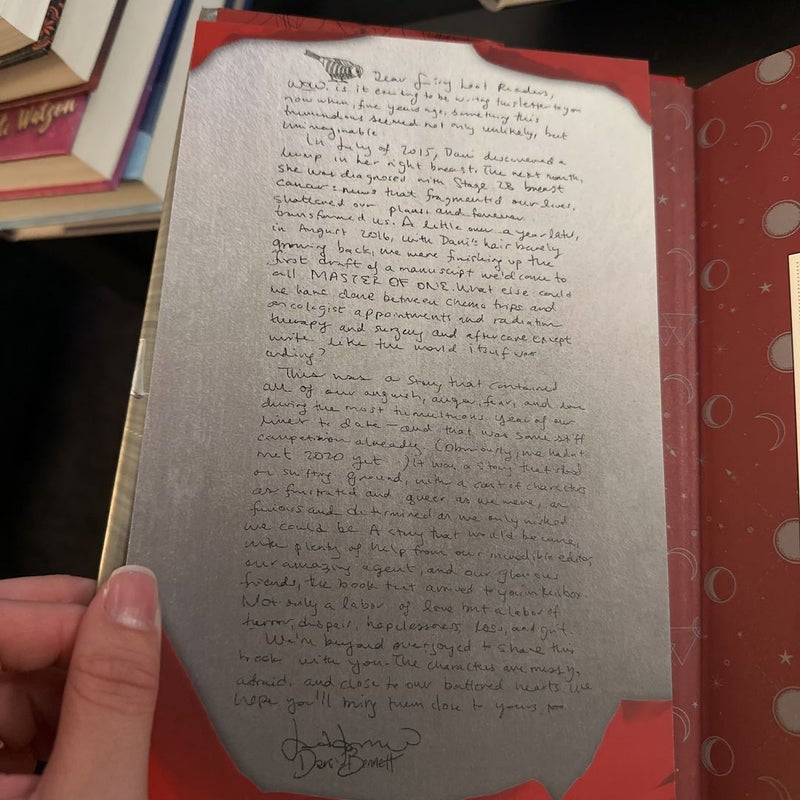 Watson
Dear Fairy Loot Readers,
Wow. is it exciting to be writing this letter to you
now when, five years ago, something this
tremendous seemed not only unlikely, but
unimaginable
In July of 2015, Dani discovered a
lump in her right breast. The next month,
she was diagnosed with Stage 2B breast
cancer: news that fragmented our lives,
shattered our plans, and forever
transformed us. A little over a year later,
in August 2016, with Dani's hair barely
growing back, we were finishing up the
first draft of a manuscript we'd come to
call MASTER OF ONE. What else could
we have done between chemo trips and
oncologist appointments and radiation
therapy and surgery and aftercare except
write like the world itself was
ending?
This was a story that contained
all of our anguish, anger, fear, and love
during the most tumultuous year of our
lives to date – and that was some stiff
competition already (Obviously, we hadn't
met 2020 yet.) it was a story that stood
on shifting ground, with a cast of characters
as frustrated and queer as we were, as
furious and determined as we only wished
we could be A story that would become,
with plenty of help from our incredible editor,
our amazing agent, and our glorious
friends, the book that arrived to your mailbox.
Not only a labor of love but a labor of
terror, dispair, hopelessness, loss, and grit.
We're beyond overjoyed to share this
book with you. The characters are messy,
afraid, and close to our battered hearts. We
hope you'll bring them close to yours, too.
Dani Bennett